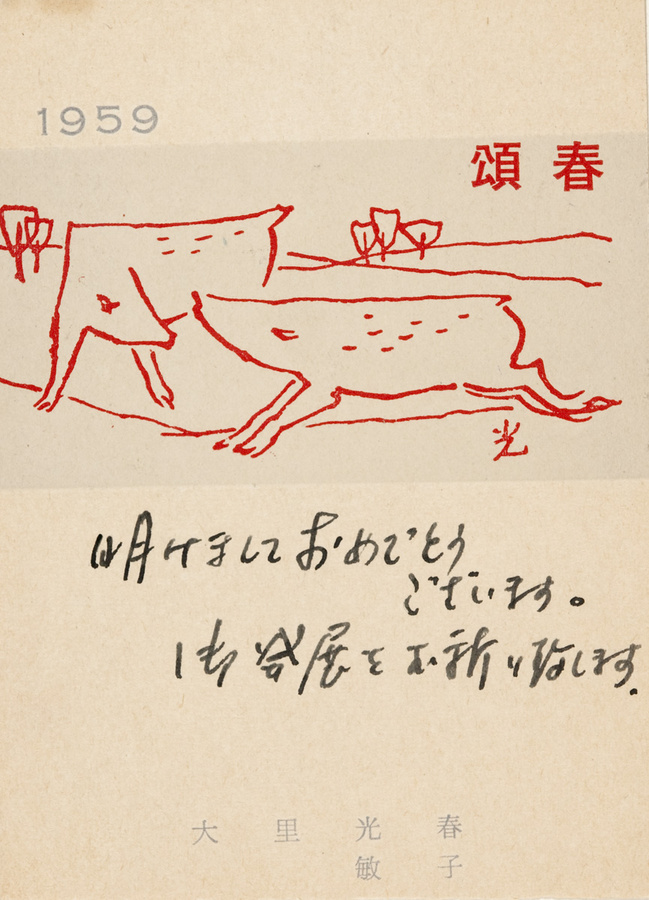 1959
頌春
光
明けましておめでとう
ございます。
御発展をお祈り致します。
大里光春
敏子